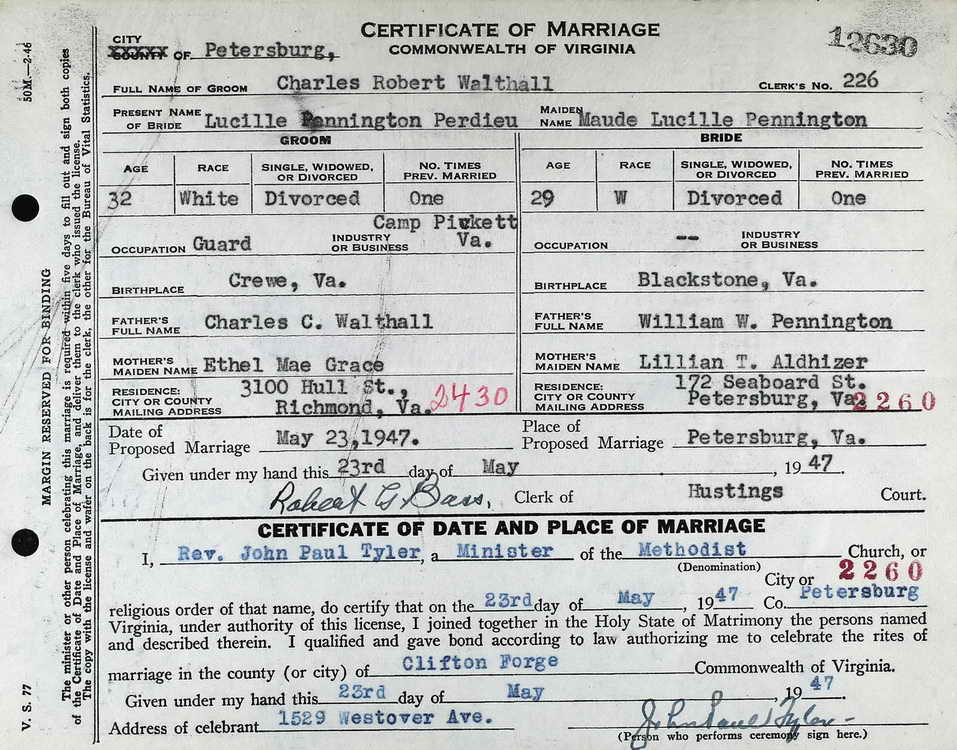 CERTIFICATE OF MARRIAGE
COMMONWEALTH OF VIRGINIA
12630
CITY
COUNTY OF Petersburg,
FULL NAME OF GROOM Charles Robert Walthall CLERK'S NO. 226
PRESENT NAME OF BRIDE Lucille Pennington Perdieu MAIDEN NAME Maude Lucille Pennington
GROOM BRIDE
AGE RACE SINGLE, WIDOWED, OR DIVORCED NO. TIMES PREV. MARRIED AGE RACE SINGLE, WIDOWED, OR DIVORCED NO. TIMES PREV. MARRIED
32 White Divorced One 29 W Divorced One
OCCUPATION Guard INDUSTRY OR BUSINESS Camp Pickett Va. OCCUPATION -- INDUSTRY OR BUSINESS
BIRTHPLACE Crewe, Va. BIRTHPLACE Blackstone, Va.
FATHER'S FULL NAME Charles C. Walthall FATHER'S FULL NAME William W. Pennington
MOTHER'S MAIDEN NAME Ethel Mae Grace MOTHER'S MAIDEN NAME Lillian T. Aldhizer
RESIDENCE: CITY OR COUNTY MAILING ADDRESS 3100 Hull St., Richmond, Va. 2430 RESIDENCE: CITY OR COUNTY MAILING ADDRESS 172 Seaboard St. Petersburg, Va. 2260
Date of Proposed Marriage May 23,1947. Place of Proposed Marriage Petersburg, Va.
Given under my hand this 23rd day of May , 19 47.
Robert G. Bass, Clerk of Hustings Court.
CERTIFICATE OF DATE AND PLACE OF MARRIAGE
I, Rev. John Paul Tyler, a Minister of the Methodist Church, or
(Denomination)
2260
City or
religious order of that name, do certify that on the 23rd day of May, 19 47 Co. Petersburg
Virginia, under authority of this license, I joined together in the Holy State of Matrimony the persons named
and described therein. I qualified and gave bond according to law authorizing me to celebrate the rites of
marriage in the county (or city) of Clifton Forge Commonwealth of Virginia.
Given under my hand this 23rd day of May , 19 47
Address of celebrant 1529 Westover Ave. John Paul Tyler
(Person who performs ceremony sign here.)
V. S. 77
50M—2-46
MARGIN RESERVED FOR BINDING
The minister or other person celebrating this marriage is required within five days to fill out and sign both copies
of the Certificate of Date and Place of Marriage, and deliver them to the clerk who issued the license.
The copy with the license and wafer on the back is for the clerk, the other for the Bureau of Vital Statistics.